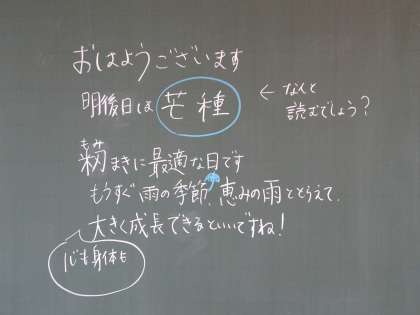 おはようございます
明後日は 芒種 ← なんと
読むでしょう?
もみ
籾まきに最適な日です
もうすぐ雨の季節、恵みの雨ととらえて、
大きく成長できるといいですね!
心も身体も